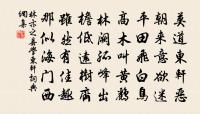 莫道東軒惡
朝來意欲迷
平田飛白鳥
高木叫黃鸝
林闕孤峰出
檐低遠樹齊
雖然有佳趣
那似海門西
林亦之喜學東軒詞典
網集